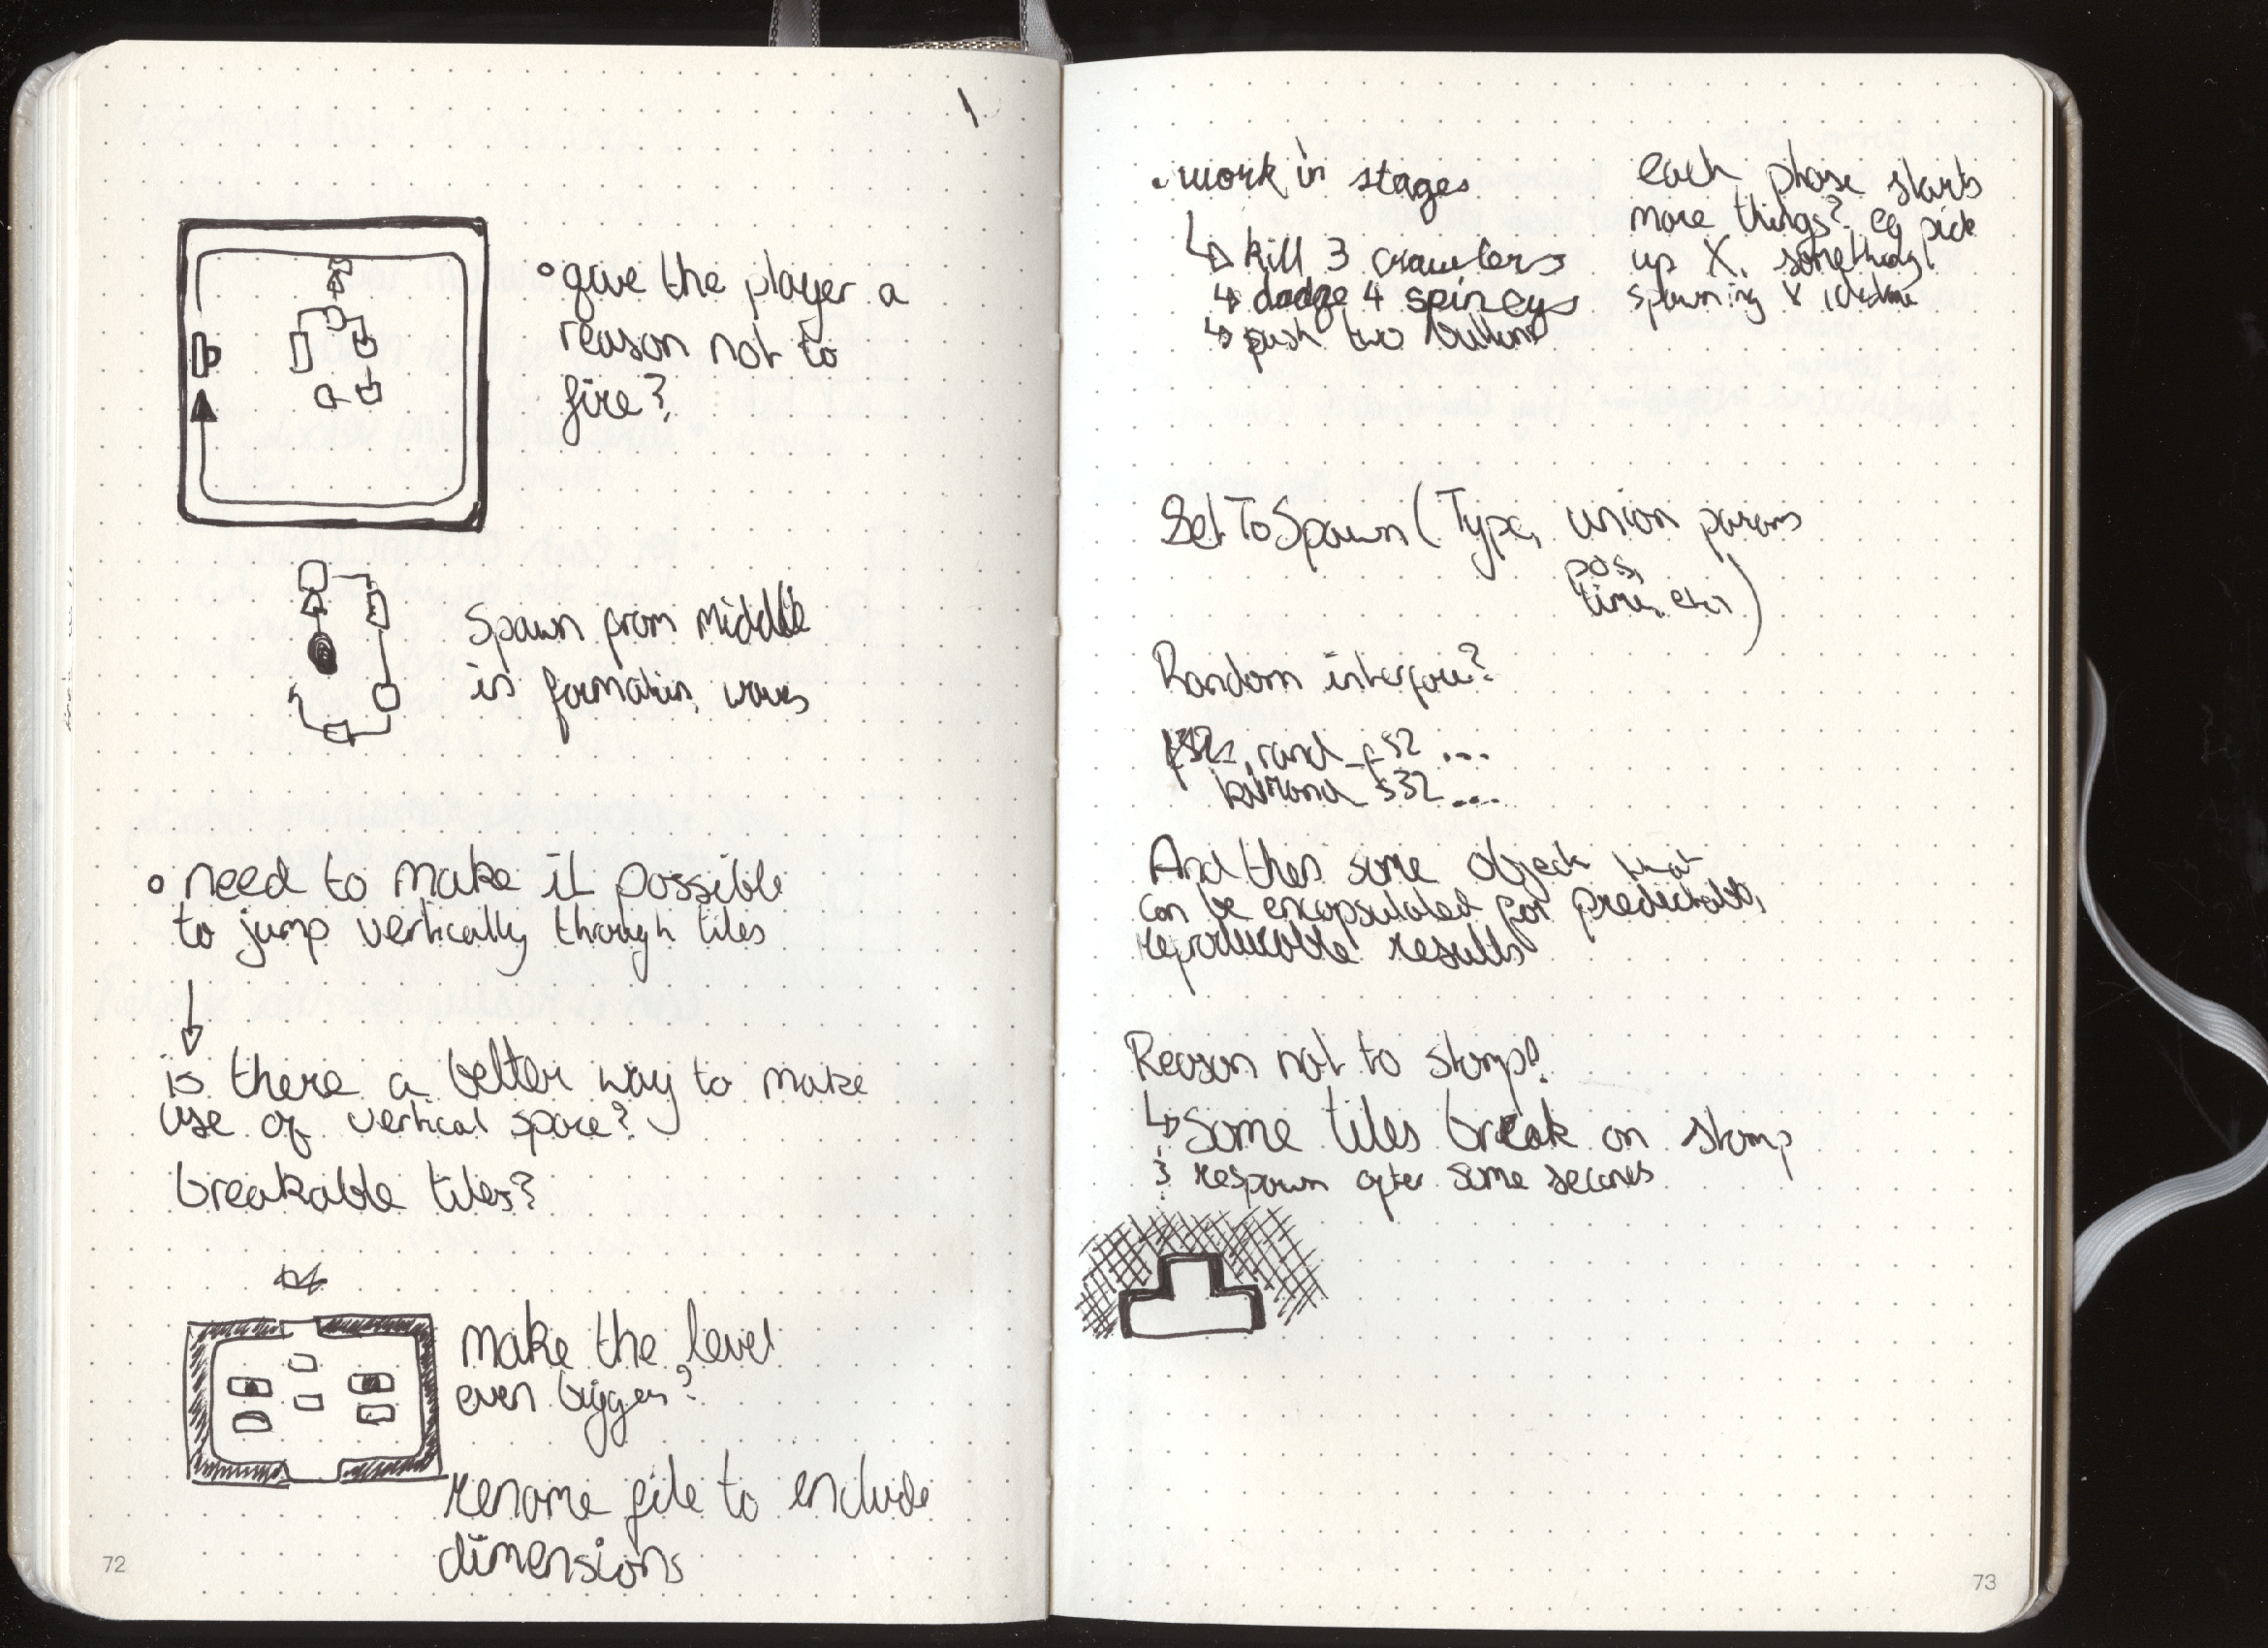 • give the player a
reason not to
fire?
Spawn from middle
in formation, waves
• need to make it possible
to jump vertically through tiles
is there a better way to make
use of vertical space?
breakable tiles?
make the level
even bigger?
rename file to include
dimensions
72
• work in stages
↳ kill 3 crawlers
↳ dodge 4 spineys
↳ push two buttons
each phase starts
more things? eg pick
up X, something
spawning
SetToSpawn(Type, union params
pos,
time, etc)
Random interface?
rand_ ...
s32 ...
And then some object that
can be encapsulated for predictable,
reproducible results
Reason not to stomp?
↳ Some tiles break on stomp
& respawn after some seconds
73